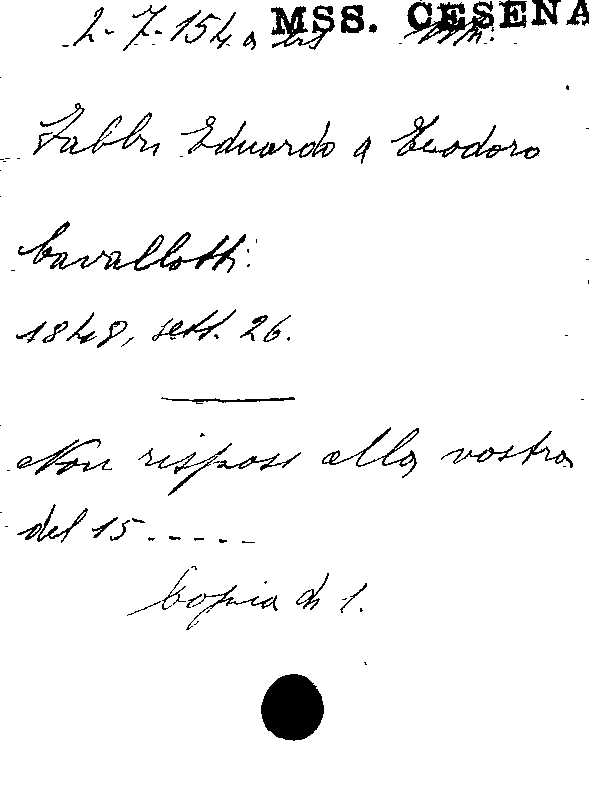 MSS. CESENA
2-7-154 a bis
Fabbri Eduardo a Teodoro
Cavallotti:
1848, sett. 26.
Non risposi alla vostra
del 15 -----
Copia di l.